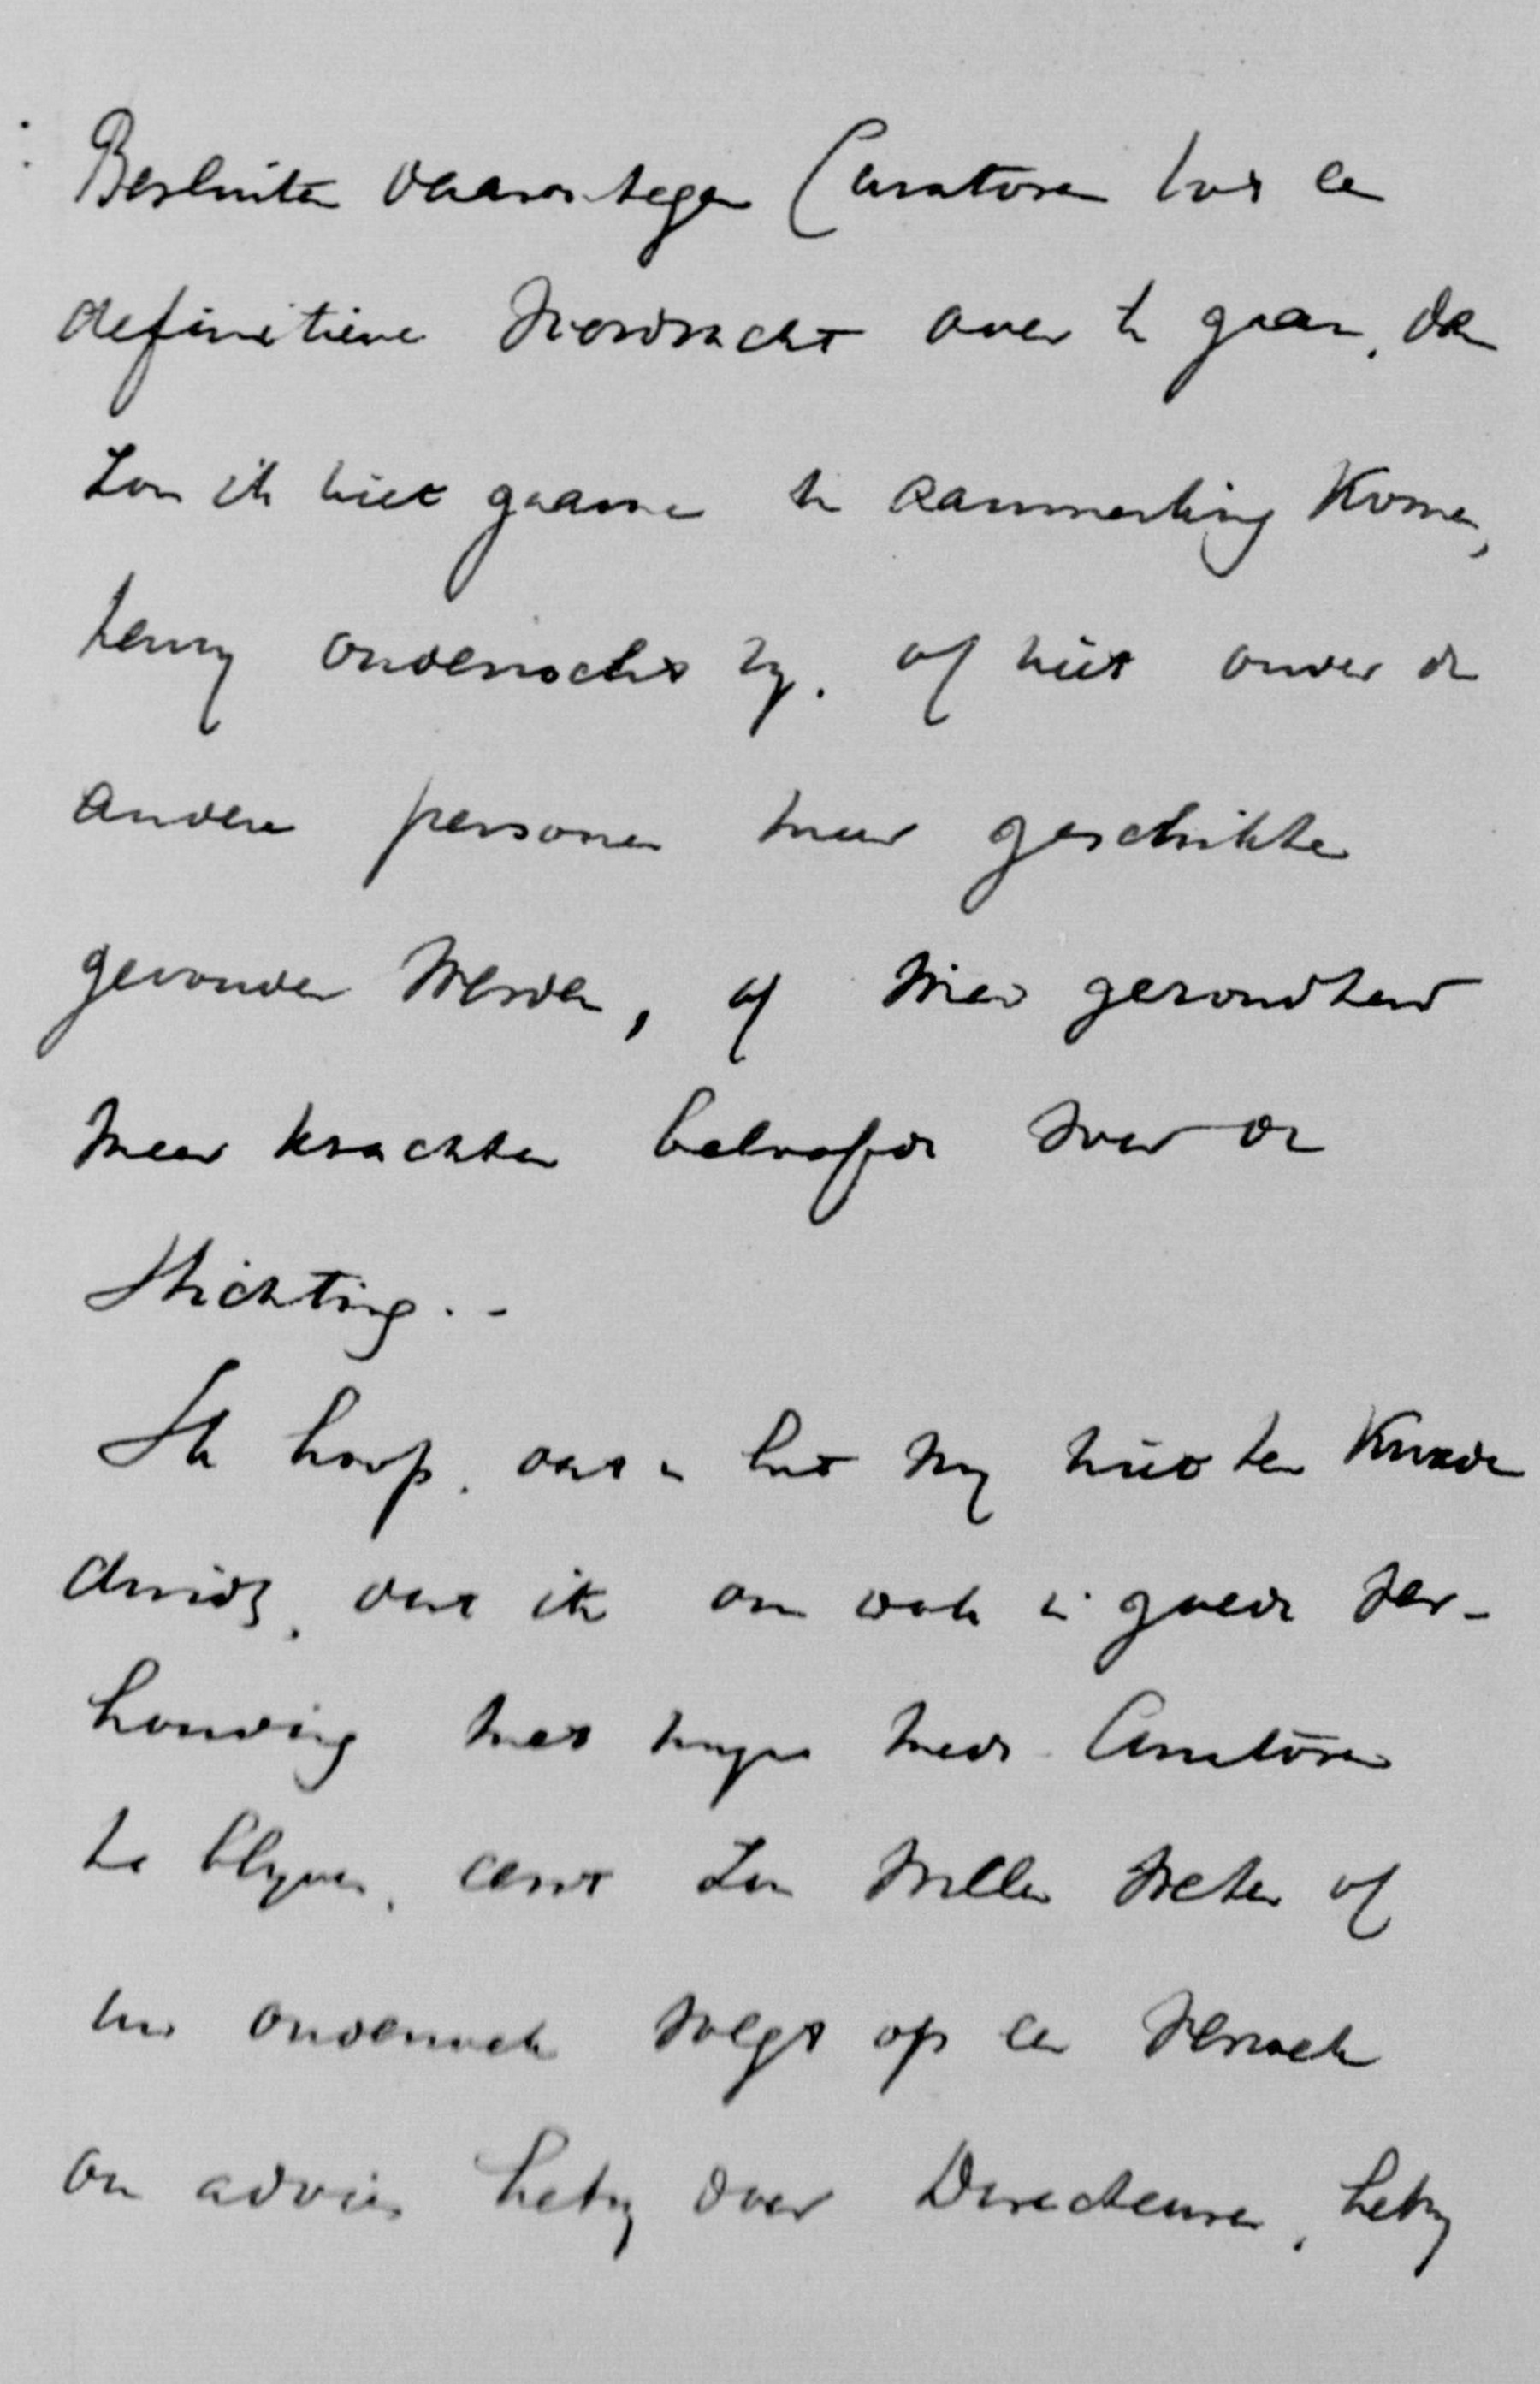 Besluiten daarentegen Curatoren tot een
definitieve voordracht over te gaan, dan
zou ik niet gaarne in aanmerking komen,
tenzij onderzocht zij, of niet onder de
andere personen meer geschikten
gevonden werden, of wier gezondheid
meer krachten beloofde voor de
Stichting. -
Ik hoop, dat u het mij niet ten kwade
duidt, dat ik om ook in goede ver-
houding met mijne mede Curatoren
te blijven, eerst zou willen weten of
uw onderzoek volgt op een verzoek
om advies hetzij door Directeuren, hetzij